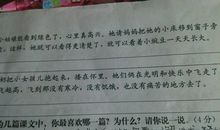 小姑娘能看到绿色了,心里真高兴。她请妈妈把她的小床移到窗子旁
这样,她就可以看得更清楚了,就可以看着小豌豆一天天长大。
妈把小女孩儿抱起来,搂在怀里。她们俩在光明和快乐中飞走了
越高,飞到那没有寒冷,没有饥饿,也没有痛苦的地方去了。
的几篇课文中,你最喜欢哪一篇?为什么?请你说一说。(4分